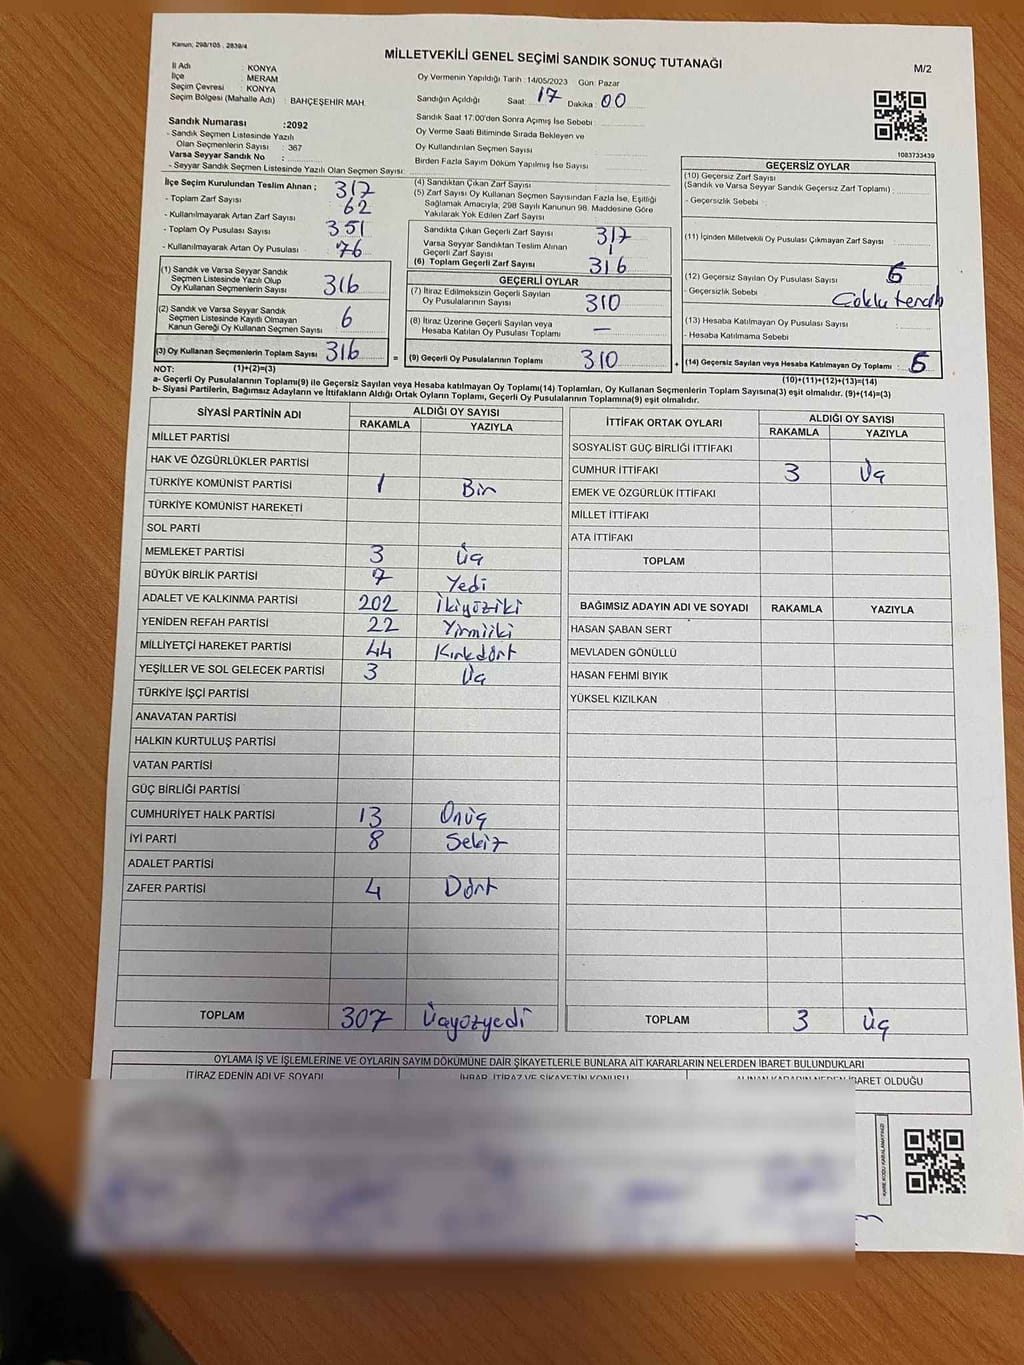 Kanun; 298/105 ; 2839/4
MİLLETVEKİLİ GENEL SEÇİMİ SANDIK SONUÇ TUTANAĞI
M/2
İl Adı : KONYA
İlçe : MERAM
Seçim Çevresi : KONYA
Seçim Bölgesi (Mahalle Adı) : BAHÇEŞEHİR MAH.
Sandık Numarası :2092
- Sandık Seçmen Listesinde Yazılı
Olan Seçmenlerin Sayısı : 367
Varsa Seyyar Sandık No :
- Seyyar Sandık Seçmen Listesinde Yazılı Olan Seçmen Sayısı:
Oy Vermenin Yapıldığı Tarih :14/05/2023 Gün: Pazar
Sandığın Açıldığı Saat: 17 Dakika : 00
Sandık Saat 17:00'den Sonra Açımış İse Sebebi :
Oy Verme Saati Bitiminde Sırada Bekleyen ve
Oy Kullandırılan Seçmen Sayısı :
Birden Fazla Sayım Döküm Yapılmış İse Sayısı :
1083733439
İlçe Seçim Kurulundan Teslim Alınan ;
- Toplam Zarf Sayısı : 317
- Kullanılmayarak Artan Zarf Sayısı : 62
- Toplam Oy Pusulası Sayısı : 351
- Kullanılmayarak Artan Oy Pusulası : 76
(1) Sandık ve Varsa Seyyar Sandık
Seçmen Listesinde Yazılı Olup
Oy Kullanan Seçmenlerin Sayısı : 316
(2) Sandık ve Varsa Seyyar Sandık
Seçmen Listesinde Kayıtlı Olmayan
Kanun Gereği Oy Kullanan Seçmen Sayısı : 6
(3) Oy Kullanan Seçmenlerin Toplam Sayısı : 316
(4) Sandıktan Çıkan Zarf Sayısı
(5) Zarf Sayısı Oy Kullanan Seçmen Sayısından Fazla İse, Eşitliği
Sağlamak Amacıyla, 298 Sayılı Kanunun 98. Maddesine Göre
Yakılarak Yok Edilen Zarf Sayısı
Sandıkta Çıkan Geçerli Zarf Sayısı : 317
Varsa Seyyar Sandıktan Teslim Alınan
Geçerli Zarf Sayısı : 1
(6) Toplam Geçerli Zarf Sayısı : 316
GEÇERLİ OYLAR
(7) İtiraz Edilmeksizin Geçerli Sayılan
Oy Pusulalarının Sayısı : 310
(8) İtiraz Üzerine Geçerli Sayılan veya
Hesaba Katılan Oy Pusulası Toplamı : —
= (9) Geçerli Oy Pusulalarının Toplamı : 310
GEÇERSİZ OYLAR
(10) Geçersiz Zarf Sayısı
(Sandık ve Varsa Seyyar Sandık Geçersiz Zarf Toplamı) :
- Geçersizlik Sebebi :
(11) İçinden Milletvekili Oy Pusulası Çıkmayan Zarf Sayısı :
(12) Geçersiz Sayılan Oy Pusulası Sayısı : 6
- Geçersizlik Sebebi : Çoklu tercih
(13) Hesaba Katılmayan Oy Pusulası Sayısı :
- Hesaba Katılmama Sebebi :
+ (14) Geçersiz Sayılan veya Hesaba Katılmayan Oy Toplamı : 6
NOT: (1)+(2)=(3)
(10)+(11)+(12)+(13)=(14)
a- Geçerli Oy Pusulalarının Toplamı(9) ile Geçersiz Sayılan veya Hesaba katılmayan Oy Toplamı(14) Toplamları, Oy Kullanan Seçmenlerin Toplam Sayısına(3) eşit olmalıdır. (9)+(14)=(3)
b- Siyasi Partilerin, Bağımsız Adayların ve İttifakların Aldığı Ortak Oyların Toplamı, Geçerli Oy Pusulalarının Toplamına(9) eşit olmalıdır.
SİYASİ PARTİNİN ADI ALDIĞI OY SAYISI
RAKAMLA YAZIYLA
MİLLET PARTİSİ
HAK VE ÖZGÜRLÜKLER PARTİSİ
TÜRKİYE KOMÜNİST PARTİSİ 1 Bir
TÜRKİYE KOMÜNİST HAREKETİ
SOL PARTİ
MEMLEKET PARTİSİ 3 Üç
BÜYÜK BİRLİK PARTİSİ 7 Yedi
ADALET VE KALKINMA PARTİSİ 202 İkiyüziki
YENİDEN REFAH PARTİSİ 22 Yirmiiki
MİLLİYETÇİ HAREKET PARTİSİ 44 Kırkdört
YEŞİLLER VE SOL GELECEK PARTİSİ 3 Üç
TÜRKİYE İŞÇİ PARTİSİ
ANAVATAN PARTİSİ
HALKIN KURTULUŞ PARTİSİ
VATAN PARTİSİ
GÜÇ BİRLİĞİ PARTİSİ
CUMHURİYET HALK PARTİSİ 13 Onüç
İYİ PARTİ 8 Sekiz
ADALET PARTİSİ
ZAFER PARTİSİ 4 Dört
TOPLAM 307 Üçyüzyedi
İTTİFAK ORTAK OYLARI ALDIĞI OY SAYISI
RAKAMLA YAZIYLA
SOSYALİST GÜÇ BİRLİĞİ İTTİFAKI
CUMHUR İTTİFAKI 3 Üç
EMEK VE ÖZGÜRLÜK İTTİFAKI
MİLLET İTTİFAKI
ATA İTTİFAKI
TOPLAM
BAĞIMSIZ ADAYIN ADI VE SOYADI RAKAMLA YAZIYLA
HASAN ŞABAN SERT
MEVLADEN GÖNÜLLÜ
HASAN FEHMİ BIYIK
YÜKSEL KIZILKAN
TOPLAM 3 Üç
OYLAMA İŞ VE İŞLEMLERİNE VE OYLARIN SAYIM DÖKÜMÜNE DAİR ŞİKAYETLERLE BUNLARA AİT KARARLARIN NELERDEN İBARET BULUNDUKLARI
İTİRAZ EDENİN ADI VE SOYADI İHBAR, İTİRAZ VE ŞİKAYETİN KONUSU ALINAN KARARIN NEDEN İBARET OLDUĞU
KARE KODU KARALAMAYINIZ!